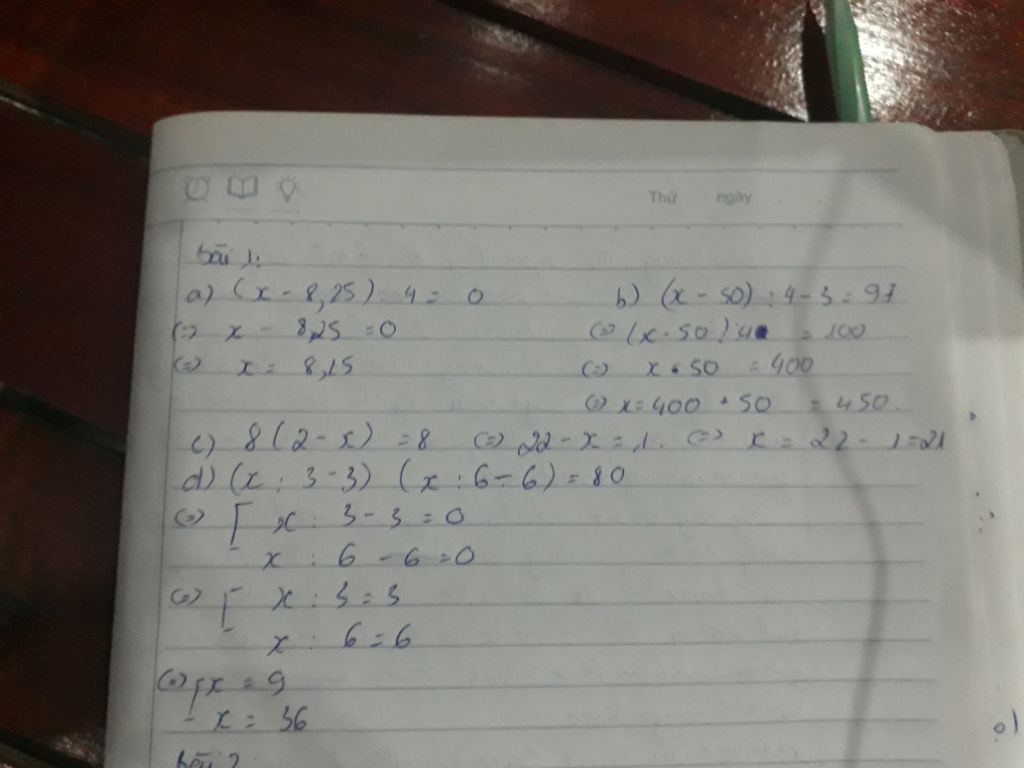 Thứ ngày
bài 1:
a) (x - 8,25) . 4 = 0 b) (x - 50) : 4 - 3 = 97
(=) x - 8,25 = 0 (=) (x - 50) : 4 = 100
(=) x = 8,25 (=) x - 50 = 400
(=) x = 400 + 50 = 450.
c) 8(2 - x) = 8 (=) 22 - x = 1. (=) x = 22 - 1 = 21
d) (x : 3 - 3) (x : 6 - 6) = 80
(=) [ x : 3 - 3 = 0
x : 6 - 6 = 0
(=) [ x : 3 = 3
x : 6 = 6
(=) [ x = 9
x = 36
bài 2